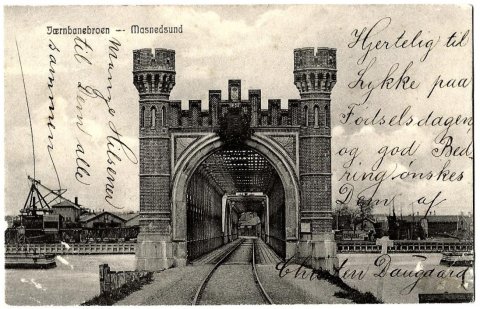 Jærnbanebroen — Masnedsund
Hjertelig til
Lykke paa
Fødselsdagen,
og god Bed
ring ønskes
Dem af
Christen Daugaard
Mange Hilsener
til Dem alle
sammen